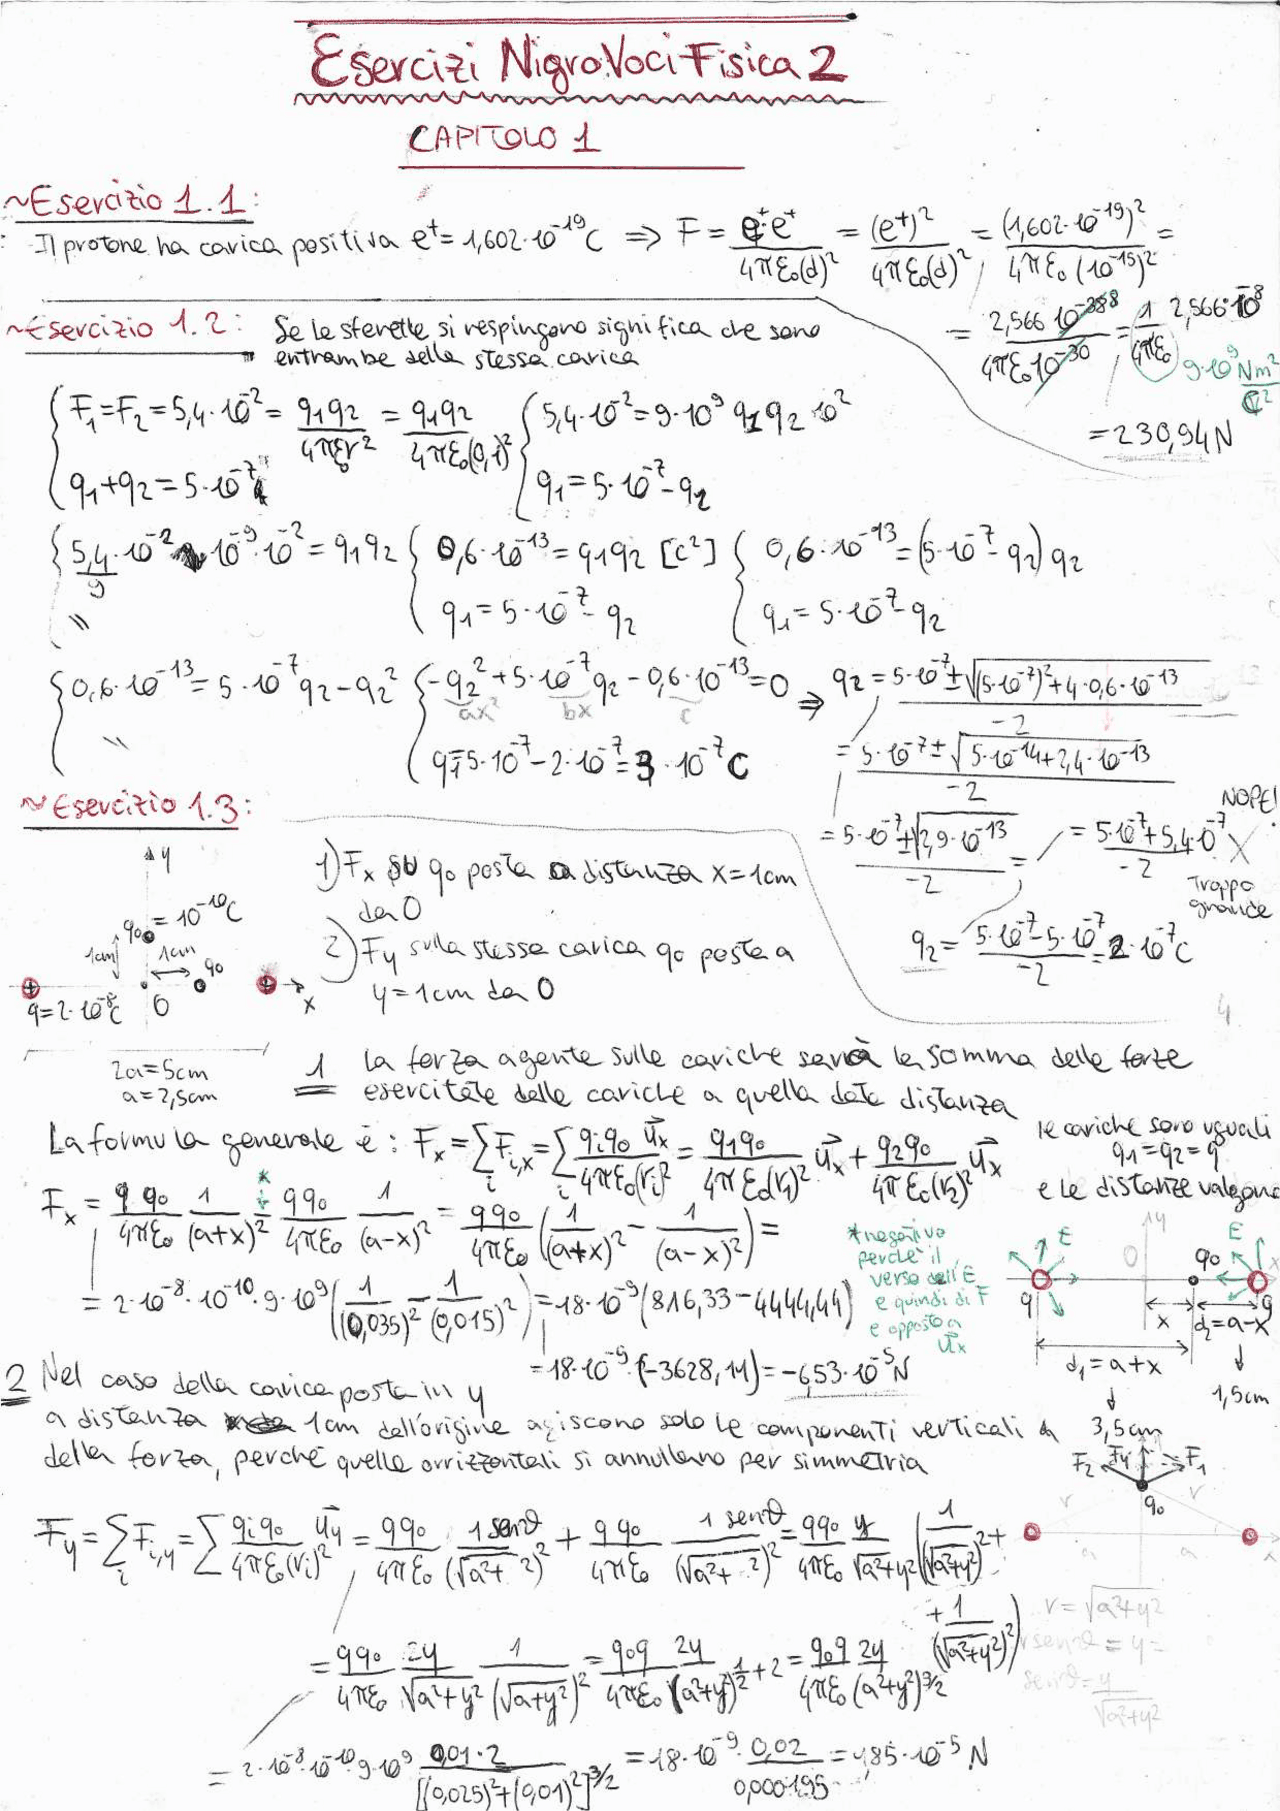 Esercizi Nigro Voci Fisica 2
CAPITOLO 1
~Esercizio 1.1:
Il protone ha carica positiva e⁺=1,602·10⁻¹⁹C ⇒ F = e⁺e⁺/4πε₀(d)² = (e⁺)²/4πε₀(d)² = (1,602·10⁻¹⁹)²/4πε₀(10⁻¹⁵)² =
= 2,566 10⁻³⁸/4πε₀10⁻³⁰ = 1/4πε₀ 2,566·10⁻⁸
9·10⁹ Nm²/C²
= 230,94 N
~Esercizio 1.2: Se le sferette si respingono significa che sono
entrambe della stessa carica
{F₁=F₂=5,4·10⁻² = q₁q₂/4πε₀r² = q₁q₂/4πε₀(0,1)² {5,4·10⁻²=9·10⁹ q₁q₂ 10²
q₁+q₂=5·10⁻⁷ q₁=5·10⁻⁷-q₂
{5,4/9·10⁻² 10⁻⁹·10⁻²=q₁q₂ {0,6·10⁻¹³=q₁q₂ [C²] {0,6·10⁻¹³=(5·10⁻⁷-q₂)q₂
" q₁=5·10⁻⁷-q₂ q₁=5·10⁻⁷-q₂
{0,6·10⁻¹³=5·10⁻⁷q₂-q₂² {-q₂²+5·10⁻⁷q₂-0,6·10⁻¹³=0 ⇒ q₂=5·10⁻⁷±√(5·10⁻⁷)²+4·0,6·10⁻¹³/-2
ax² bx c
" q₁=5·10⁻⁷-2·10⁻⁷=3·10⁻⁷C
= 5·10⁻⁷±√5·10⁻¹⁴+2,4·10⁻¹³/-2
= 5·10⁻⁷±√2,9·10⁻¹³/-2 = = 5·10⁻⁷+5,4·10⁻⁷/-2 X
NOPE!
Troppo
grande
q₂= 5·10⁻⁷-5·10⁻⁷/-2 = 2·10⁻⁷C
~Esercizio 1.3:
y
q₀=10⁻¹⁰C
1cm 1cm q₀
q=2·10⁻⁸C O x
2a=5cm
a=2,5cm
1) Fx su q₀ posta a distanza x=1cm
da O
2) Fy sulla stessa carica q₀ posta a
y=1cm da O
1 La forza agente sulle cariche sarà la somma delle forze
esercitate delle cariche a quella data distanza
La formula generale è: Fx=∑ᵢFᵢ,x=∑ᵢ qᵢq₀ u⃗x/4πε₀(rᵢ)² = q₁q₀/4πε₀(r₁)² u⃗x + q₂q₀/4πε₀(r₂)² u⃗x
le cariche sono uguali
q₁=q₂=q
e le distanze valgono
Fx = qq₀/4πε₀ 1/(a+x)² -* qq₀/4πε₀ 1/(a-x)² = qq₀/4πε₀ (1/(a+x)² - 1/(a-x)²) =
= 2·10⁻⁸·10⁻¹⁰·9·10⁹(1/(0,035)² - 1/(0,015)²) = 18·10⁻⁹(816,33-4444,44)
= 18·10⁻⁹·(-3628,11) = -6,53·10⁻⁵N
*negativo
perché il
verso dell'E
e quindi di F
e opposto a
u⃗x
y
E E
O q₀ x
q q
x d₂=a-x
d₁=a+x
1,5cm
3,5cm
2 Nel caso della carica posta in y
a distanza 1cm dell'origine agiscono solo le componenti verticali
della forza, perché quelle orrizzontali si annullano per simmetria
F₂ Fy F₁
q₀
r r
a a x
Fy=∑ᵢFᵢ,y=∑ qᵢq₀ u⃗y/4πε₀(rᵢ)² = qq₀/4πε₀ 1 senθ/(√a²+ ²)² + qq₀/4πε₀ 1 senθ/(√a²+ ²)² = qq₀/4πε₀ y/√a²+y² (1/(√a²+y²)² +
+ 1/(√a²+y²)²)
r=√a²+y²
r senθ = y =
senθ=y/√a²+y²
= qq₀/4πε₀ 2y/√a²+y² 1/(√a+y²)² = q₀q/4πε₀ 2y/(a²+y²)^1/2+2 = q₀q/4πε₀ 2y/(a²+y²)^3/2
= 2·10⁻⁸·10⁻¹⁰·9·10⁹ 0,01·2/[(0,025)²+(0,01)²]^3/2 = 18·10⁻⁹·0,02/0,0000195 = 1,85·10⁻⁵ N